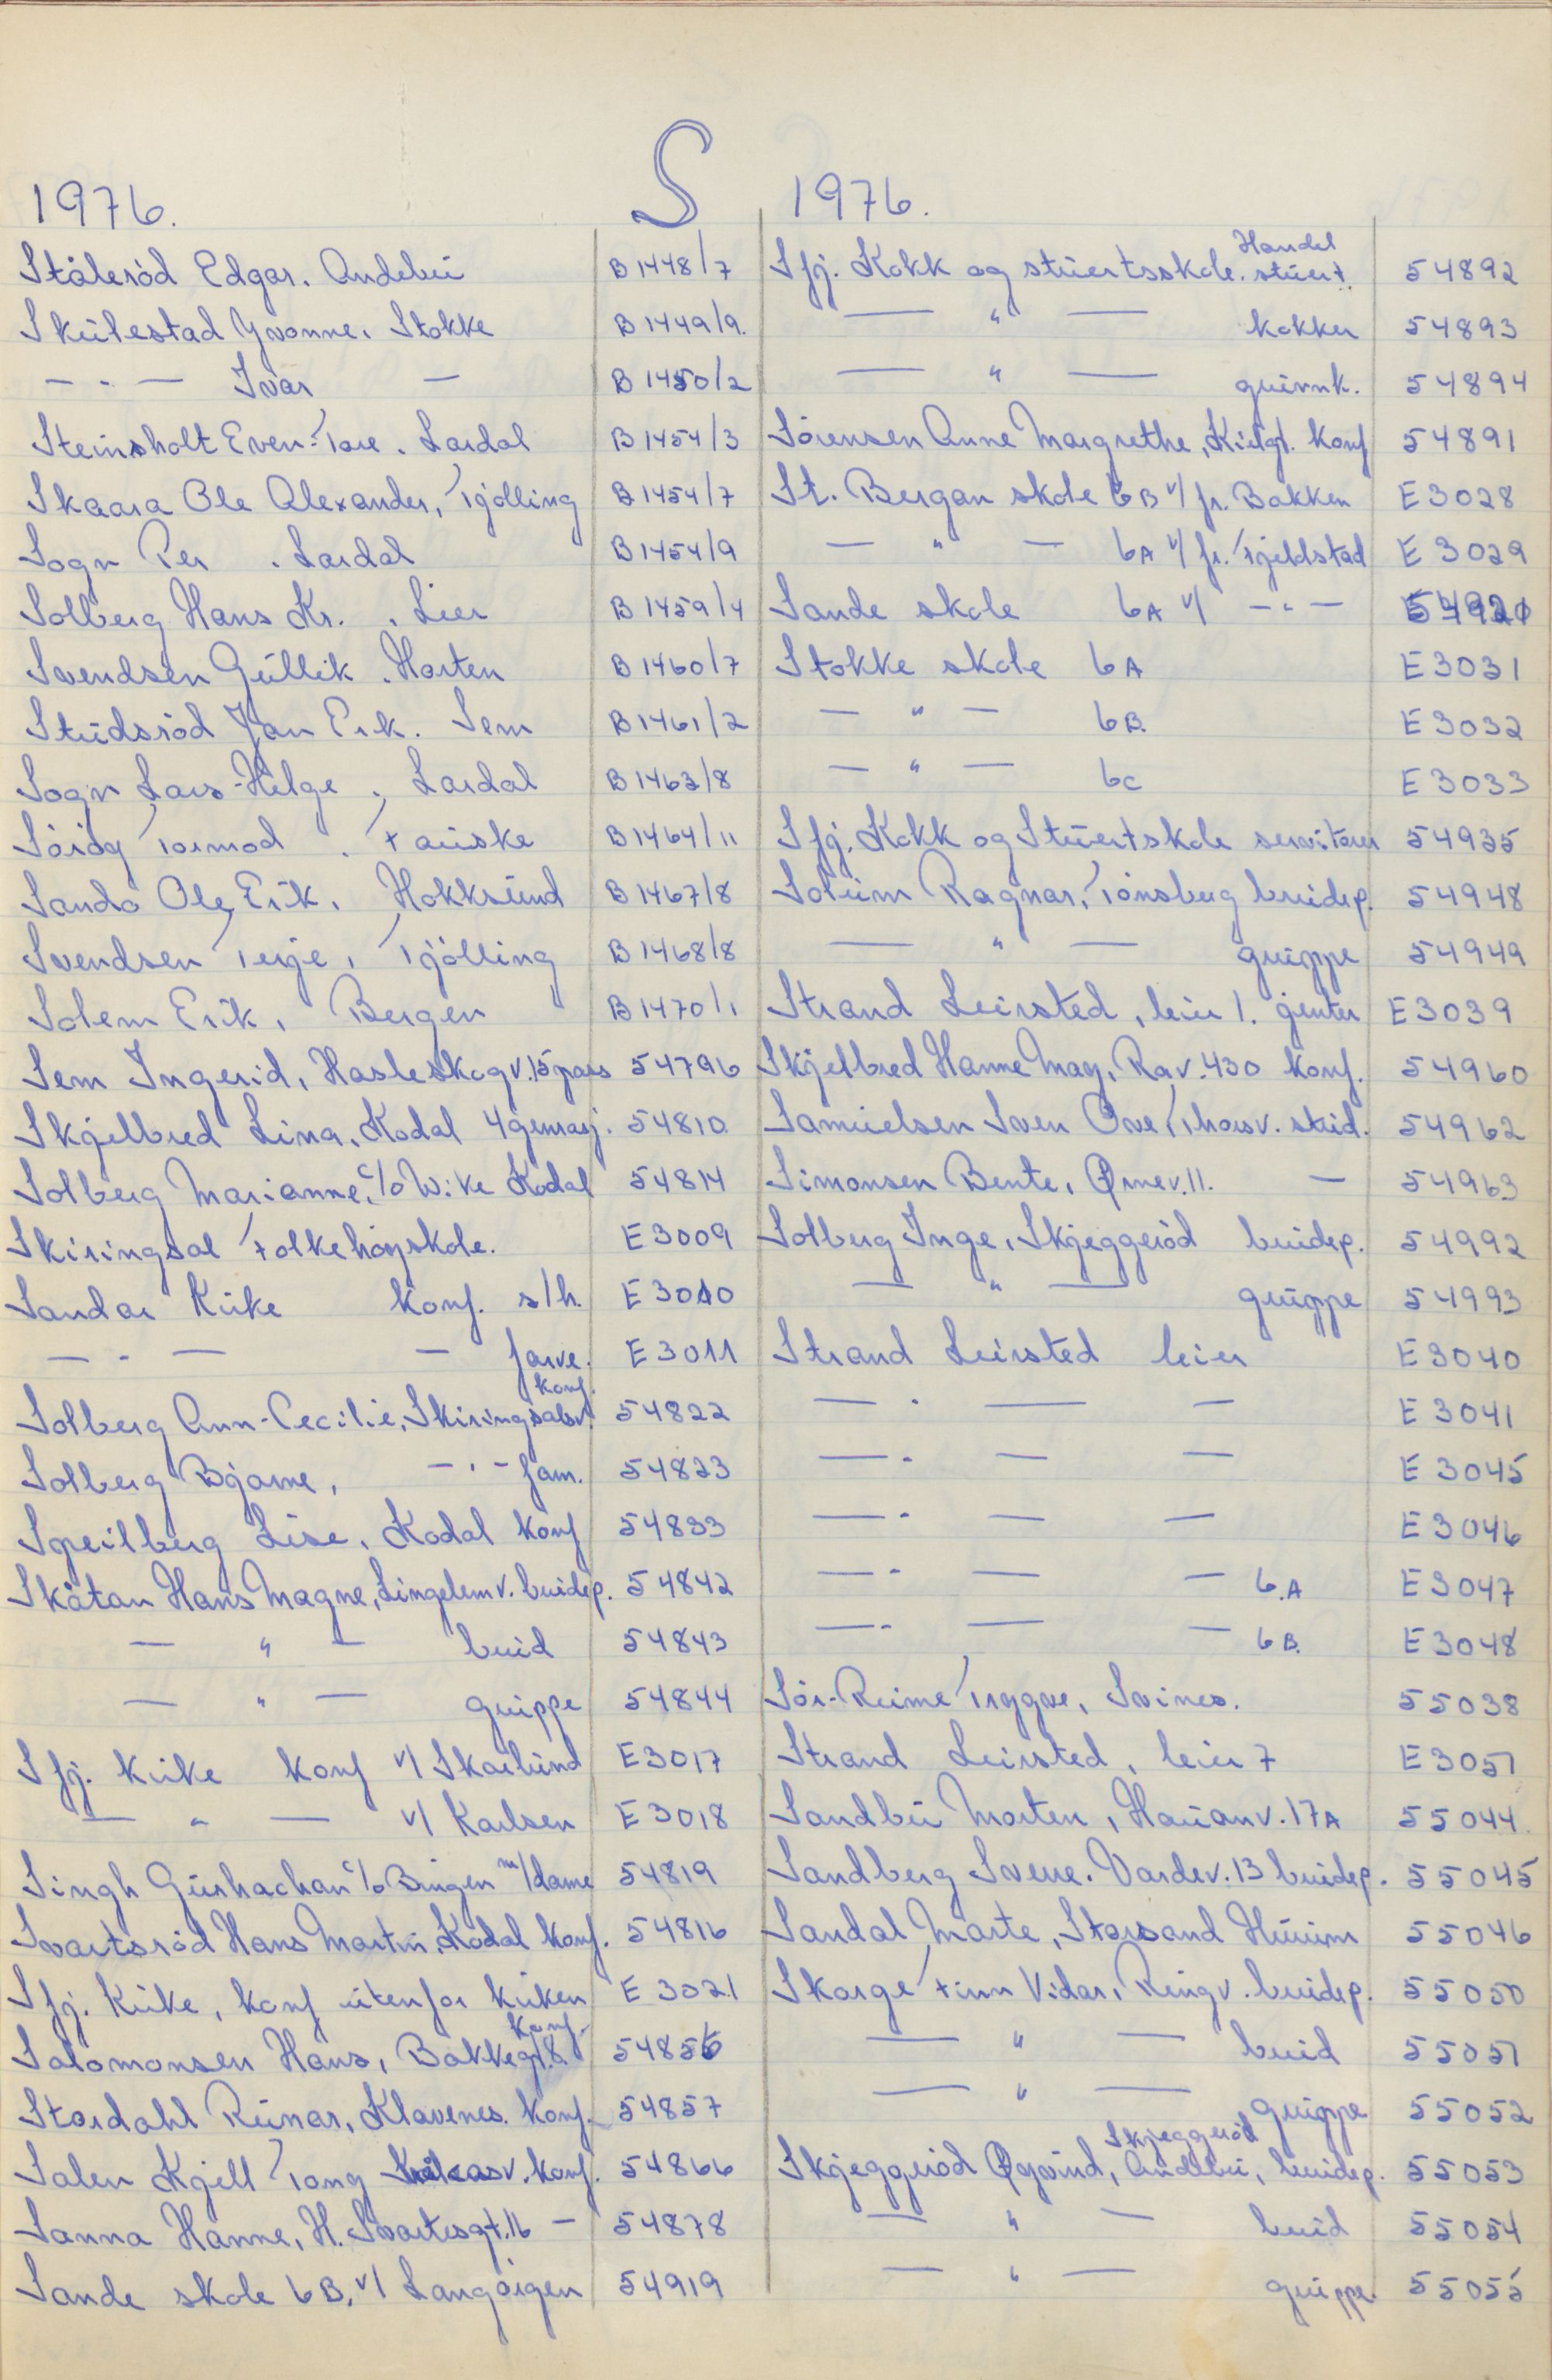 S
1976.
Stålerød Edgar. Andebu B 1448/7
Skulestad Yvonne. Stokke B 1449/9.
— " — Ivar — B 1450/2
Steinsholt Even-Tore. Lardal B 1454/3
Skaara Ole Alexander, Tjølling B 1454/7
Sogn Per . Lardal B 1454/9
Solberg Hans Kr. . Lier B 1459/4
Svendsen Gullik. Horten B 1460/7
Studsrød Jan Erik. Sem B 1461/2
Sogn Lars-Helge . Lardal B 1463/8
Sörög Tormod . Fauske B 1464/11
Sando Ole Erik. Hokksund B 1467/8
Svendsen Terje, Tjølling B 1468/8
Solem Erik, Bergen B 1470/1
Sem Ingerid, Hasleskogv. 15 pass 54796
Skjelbred Lina. Kodal 4 gensasj. 54810
Solberg Marianne, c/o Wike Kodal 54814
Skiringsal Folkehøyskole. E 3009
Sandar Kirke konf. s/h. E 3010
— " — — farve. E 3011
Solberg Ann-Cecilie, Skiringsalsv. konf. 54822
Solberg Bjarne, — " — fam. 54823
Speilberg Lise. Kodal konf 54833
Skåtan Hans Magne, Lingelemv. brudep. 54842
— " — brud 54843
— " — gruppe 54844
Sfj. kirke konf v/ Skarlund E 3017
— " — v/ Karlsen E 3018
Singh Gurhachan c/o Bugen m/dame 54819
Svartsrød Hans Martin, Kodal konf. 54816
Sfj. Kirke, konf utenfor kirken E 3021
Salomonsen Hans, Bakkegt. 8. konf. 54856
Stordahl Runar, Klavenes. konf. 54857
Salen Kjell Tong konf. 54866
Sanna Hanne, H. Svartesgt. 16 — 54878
Sande skole 6B, v/ Langøigen 54919
1976.
Sfj. Kokk og stuertsskole. Handel stuert. 54892
— " — kokker 54893
— " — grunnk. 54894
Sörensen Anne Margrethe, Kirkgt. konf 54891
St. Bergan skole 6B v/ fr. Bakken E 3028
— " — 6A v/ fr. Tjeldstad E 3029
Sande skole 6A v/ — " — 54920
Stokke skole 6A E 3031
— " — 6B. E 3032
— " — 6C E 3033
Sfj. Kokk og Stuertskole servitører 54935
Solum Ragnar, Tønsberg brudep. 54948
— " — gruppe 54949
Strand Leirsted, leir 1. jenter E 3039
Skjelbred Hanne May, Rav. 430 konf. 54960
Samuelsen Sven Ove, Thorsv. stud. 54962
Simonsen Bente, Ørnev. 11. — 54963
Solberg Inge, Skjeggerød brudep. 54992
— " — gruppe 54993
Strand Leirsted leir E 3040
— " — — E 3041
— " — — E 3045
— " — — E 3046
— " — — 6.A E 3047
— " — — 6B. E 3048
Sör-Reime Tryggve, Svines. 55038
Strand Leirsted, leir 7 E 3051
Sandbu Morten, Hauanv. 17A 55044
Sandberg Sverre. Vardev. 13 brudep. 55045
Sandal Marte, Storsand Hurum 55046
Skorge Finn Vidar, Ringv. brudep. 55050
— " — brud 55051
— " — gruppe 55052
Skjeggerød Øyvind, Skjeggerød Andebu, brudep. 55053
— " — brud 55054
— " — gruppe. 55055